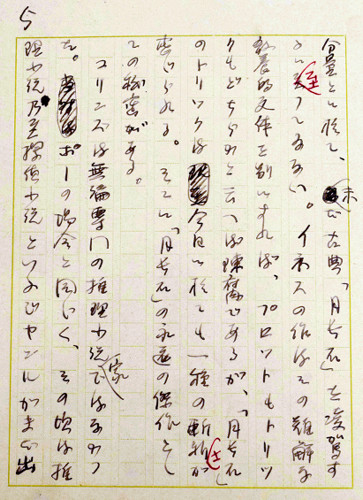 5
分量に於て、未だ古典「月長石」を凌がます
に至つてゐない。イネスの作はその難解な
教養的文体を別にすれば、プロツトもトリツ
クもどちらかと云へば陳腐であるが、「月長石」
のトリツクは今日に於ても一種の斬新さが
感じられる。そこに「月長石」の永遠の傑作とし
ての秘密がある。
コリンズは無論専門の推理小説家ではなかつ
た。ポーの場合と同じく、その頃は推
理小説乃至探偵小説といふジヤンルがまだ出